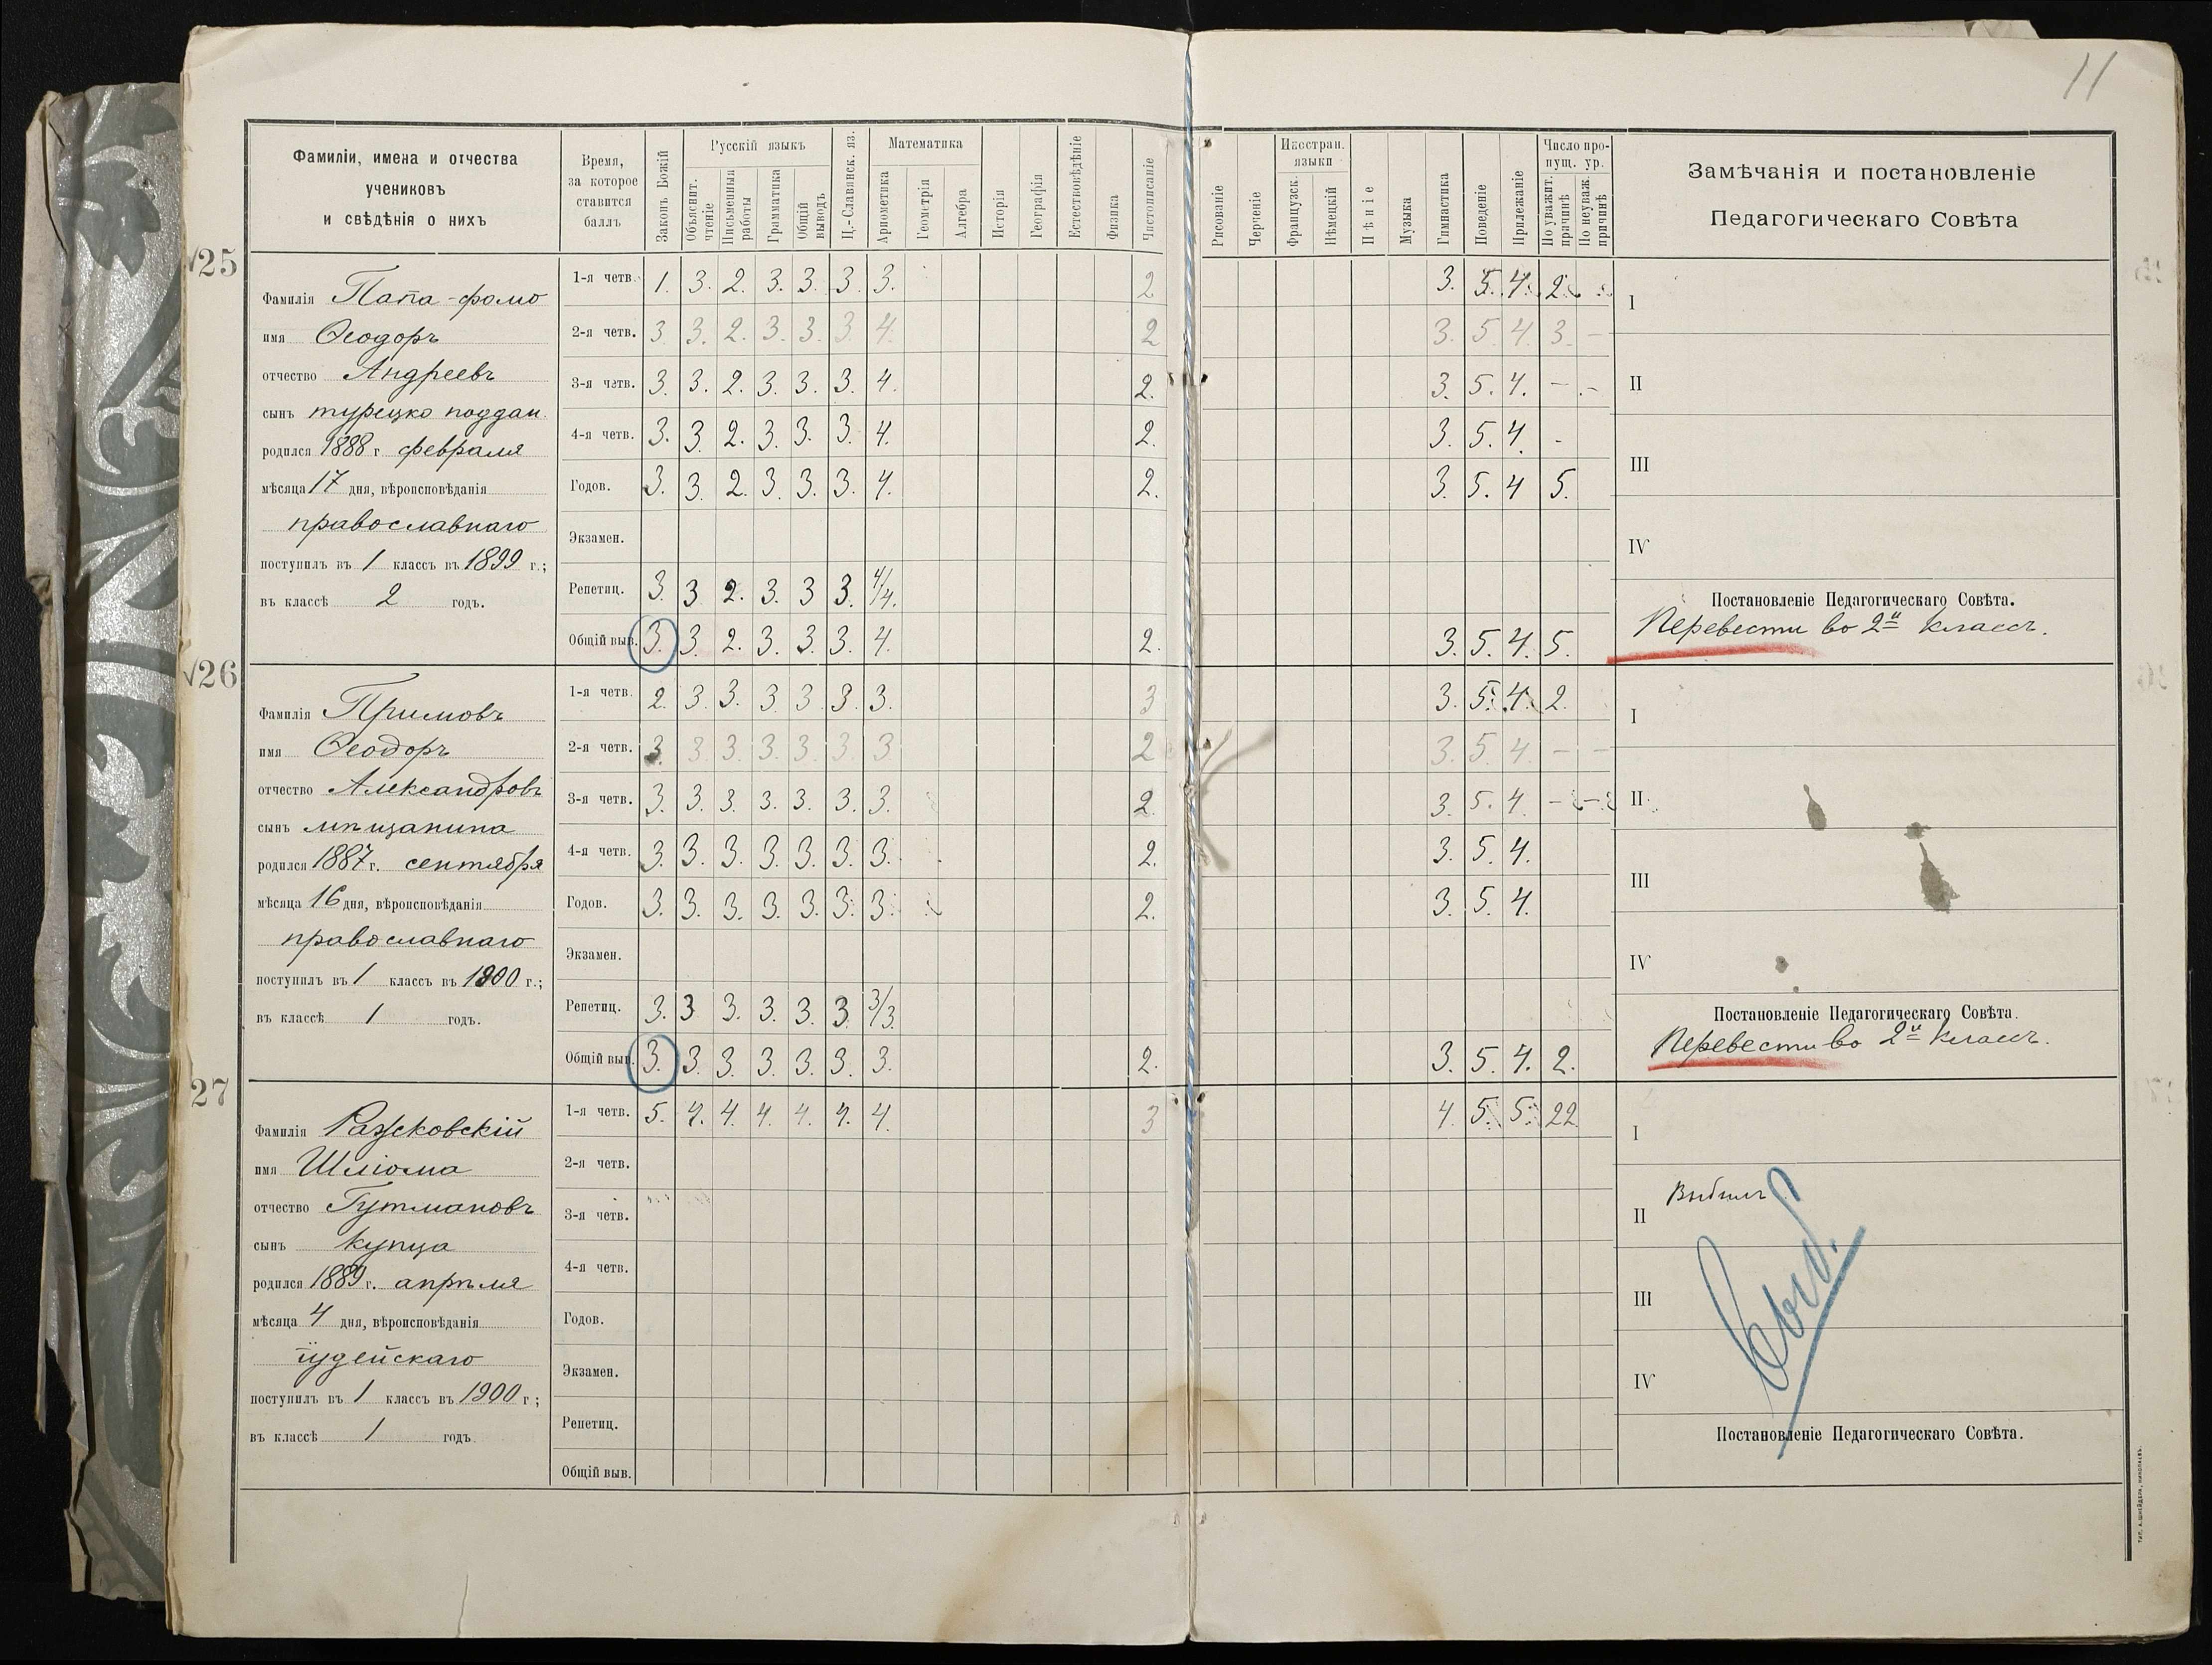 11
Фамиліи, имена и отчества
учениковъ
и свѣдѣнія о нихъ
Время,
за которое
ставится
баллъ
Законъ Божій
Русскій языкъ
Объяснит. чтеніе
Письменныя работы
Грамматика
Общій выводъ
Ц.-Славянск. яз.
Математика
Ариѳметика
Геометрія
Алгебра
Исторія
Географія
Естествовѣдѣніе
Физика
Чистописаніе
Рисованіе
Черченіе
Иностран. языки
Французск.
Нѣмецкій
Пѣніе
Музыка
Гимнастика
Поведеніе
Прилежаніе
Число пропущ. ур.
По уважит. причинѣ
По неуваж. причинѣ
Замѣчанія и постановленіе
Педагогическаго Совѣта
√25
Фамилія Папа-фомо
имя Ѳеодоръ
отчество Андреевъ
сынъ турецко поддан.
родился 1888 г февраля
мѣсяца 17 дня, вѣроисповѣданія
православнаго
поступилъ въ 1 классъ въ 1899 г.;
въ классѣ 2 годъ.
1-я четв. 1. 3. 2. 3. 3. 3. 3. 2 3. 5. 4. 2.
2-я четв. 3 3. 2. 3. 3. 3 4. 2 3. 5 4. 3 —
3-я четв. 3. 3. 2. 3. 3. 3. 4. 2. 3. 5. 4. — —
4-я четв. 3. 3 2. 3. 3. 3. 4. 2. 3. 5. 4. -
Годов. 3. 3. 2. 3. 3. 3. 4. 2. 3. 5. 4 5.
Экзамен.
Репетиц. 3. 3 2. 3. 3 3. 4/4.
Общій выв. 3. 3. 2. 3. 3. 3. 4. 2. 3. 5. 4. 5.
I
II
III
IV
Постановленіе Педагогическаго Совѣта.
Перевести во 2й классъ.
√26
Фамилія Примовъ
имя Ѳеодоръ
отчество Александровъ
сынъ мѣщанина
родился 1887 г. сентября
мѣсяца 16 дня, вѣроисповѣданія
православнаго
поступилъ въ 1 классъ въ 1900 г.;
въ классѣ 1 годъ.
1-я четв. 2. 3. 3. 3 3. 3. 3. 3 3. 5. 4. 2.
2-я четв. 3. 3 3 3. 3 3 3 2 3. 5 4 — —
3-я четв. 3. 3. 3. 3. 3. 3. 3. 2. 3. 5. 4 — —
4-я четв. 3. 3. 3. 3. 3. 3. 3. 2. 3. 5. 4.
Годов. 3. 3. 3. 3. 3. 3. 3. 2. 3. 5. 4.
Экзамен.
Репетиц. 3. 3 3. 3. 3. 3 3/3.
Общій выв. 3. 3. 3. 3. 3. 3. 3. 2. 3. 5. 4. 2.
I
II
III
IV
Постановленіе Педагогическаго Совѣта.
Перевести во 2й классъ.
27
Фамилія Ражковскій
имя Шліома
отчество Гутмановъ
сынъ купца
родился 1889 г. апрѣля
мѣсяца 4 дня, вѣроисповѣданія
іудейскаго
поступилъ въ 1 классъ въ 1900 г;
въ классѣ 1 годъ.
1-я четв. 5. 4. 4. 4. 4. 4. 4. 3 4. 5. 5. 22
2-я четв.
3-я четв.
4-я четв.
Годов.
Экзамен.
Репетиц.
Общій выв.
I
II Выбылъ
Выб.
III
IV
Постановленіе Педагогическаго Совѣта.